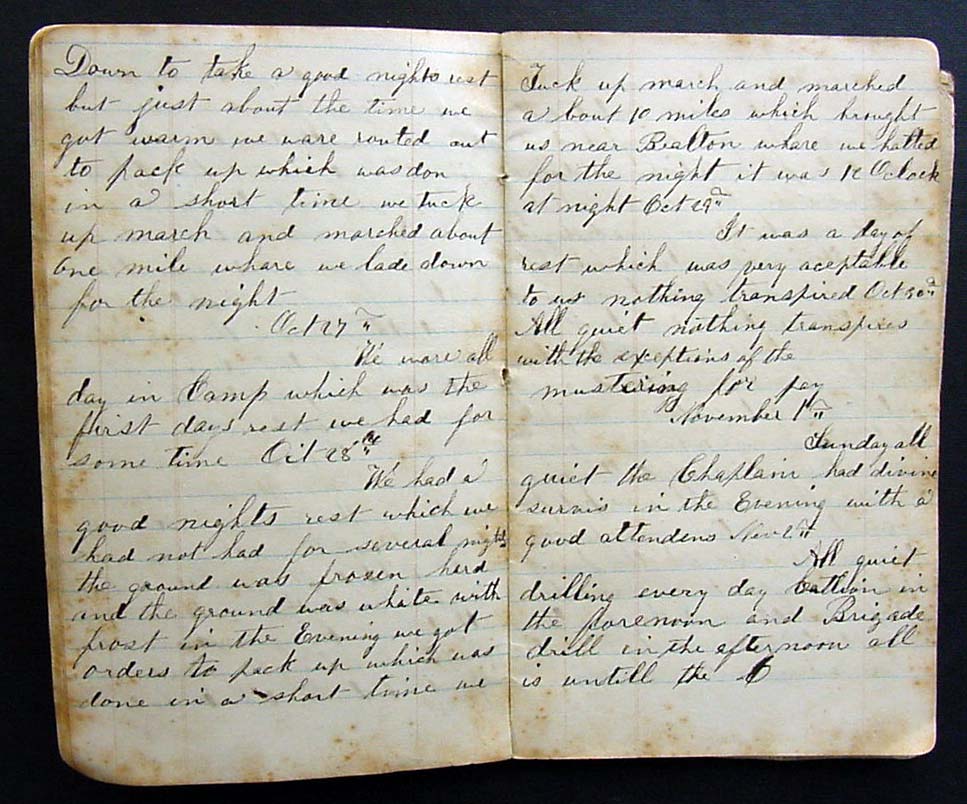 Down to take a good nights rest
but just about the time we
got warm we ware routed out
to pack up which was don
in a short time we tuck
up march and marched about
One mile whare we lade down
for the night
Oct 27th
We ware all
day in Camp which was the
first days rest we had for
some time Oct 28th
We had a
good nights rest which we
had not had for several nights
the ground was frozen hard
and the ground was white with
frost in the Evening we got
orders to pack up which was
done in a short time we
Tuck up march and marched
a bout 10 miles which brought
us near Bealton whare we halted
for the night it was 12 Oclock
at night Oct 29th
It was a day of
rest which was very aceptable
to us nothing transpired Oct 30th
All quiet nothing transpires
with the exceptions of the
mustering for pay
November 1th
Sunday all
quiet the Chaplain had divine
survis in the Evening with a
good attendens Nov 2th
All quiet
drilling every day Battlion in
the forenoon and Brigade
drill in the afternoon all
is untill the 6